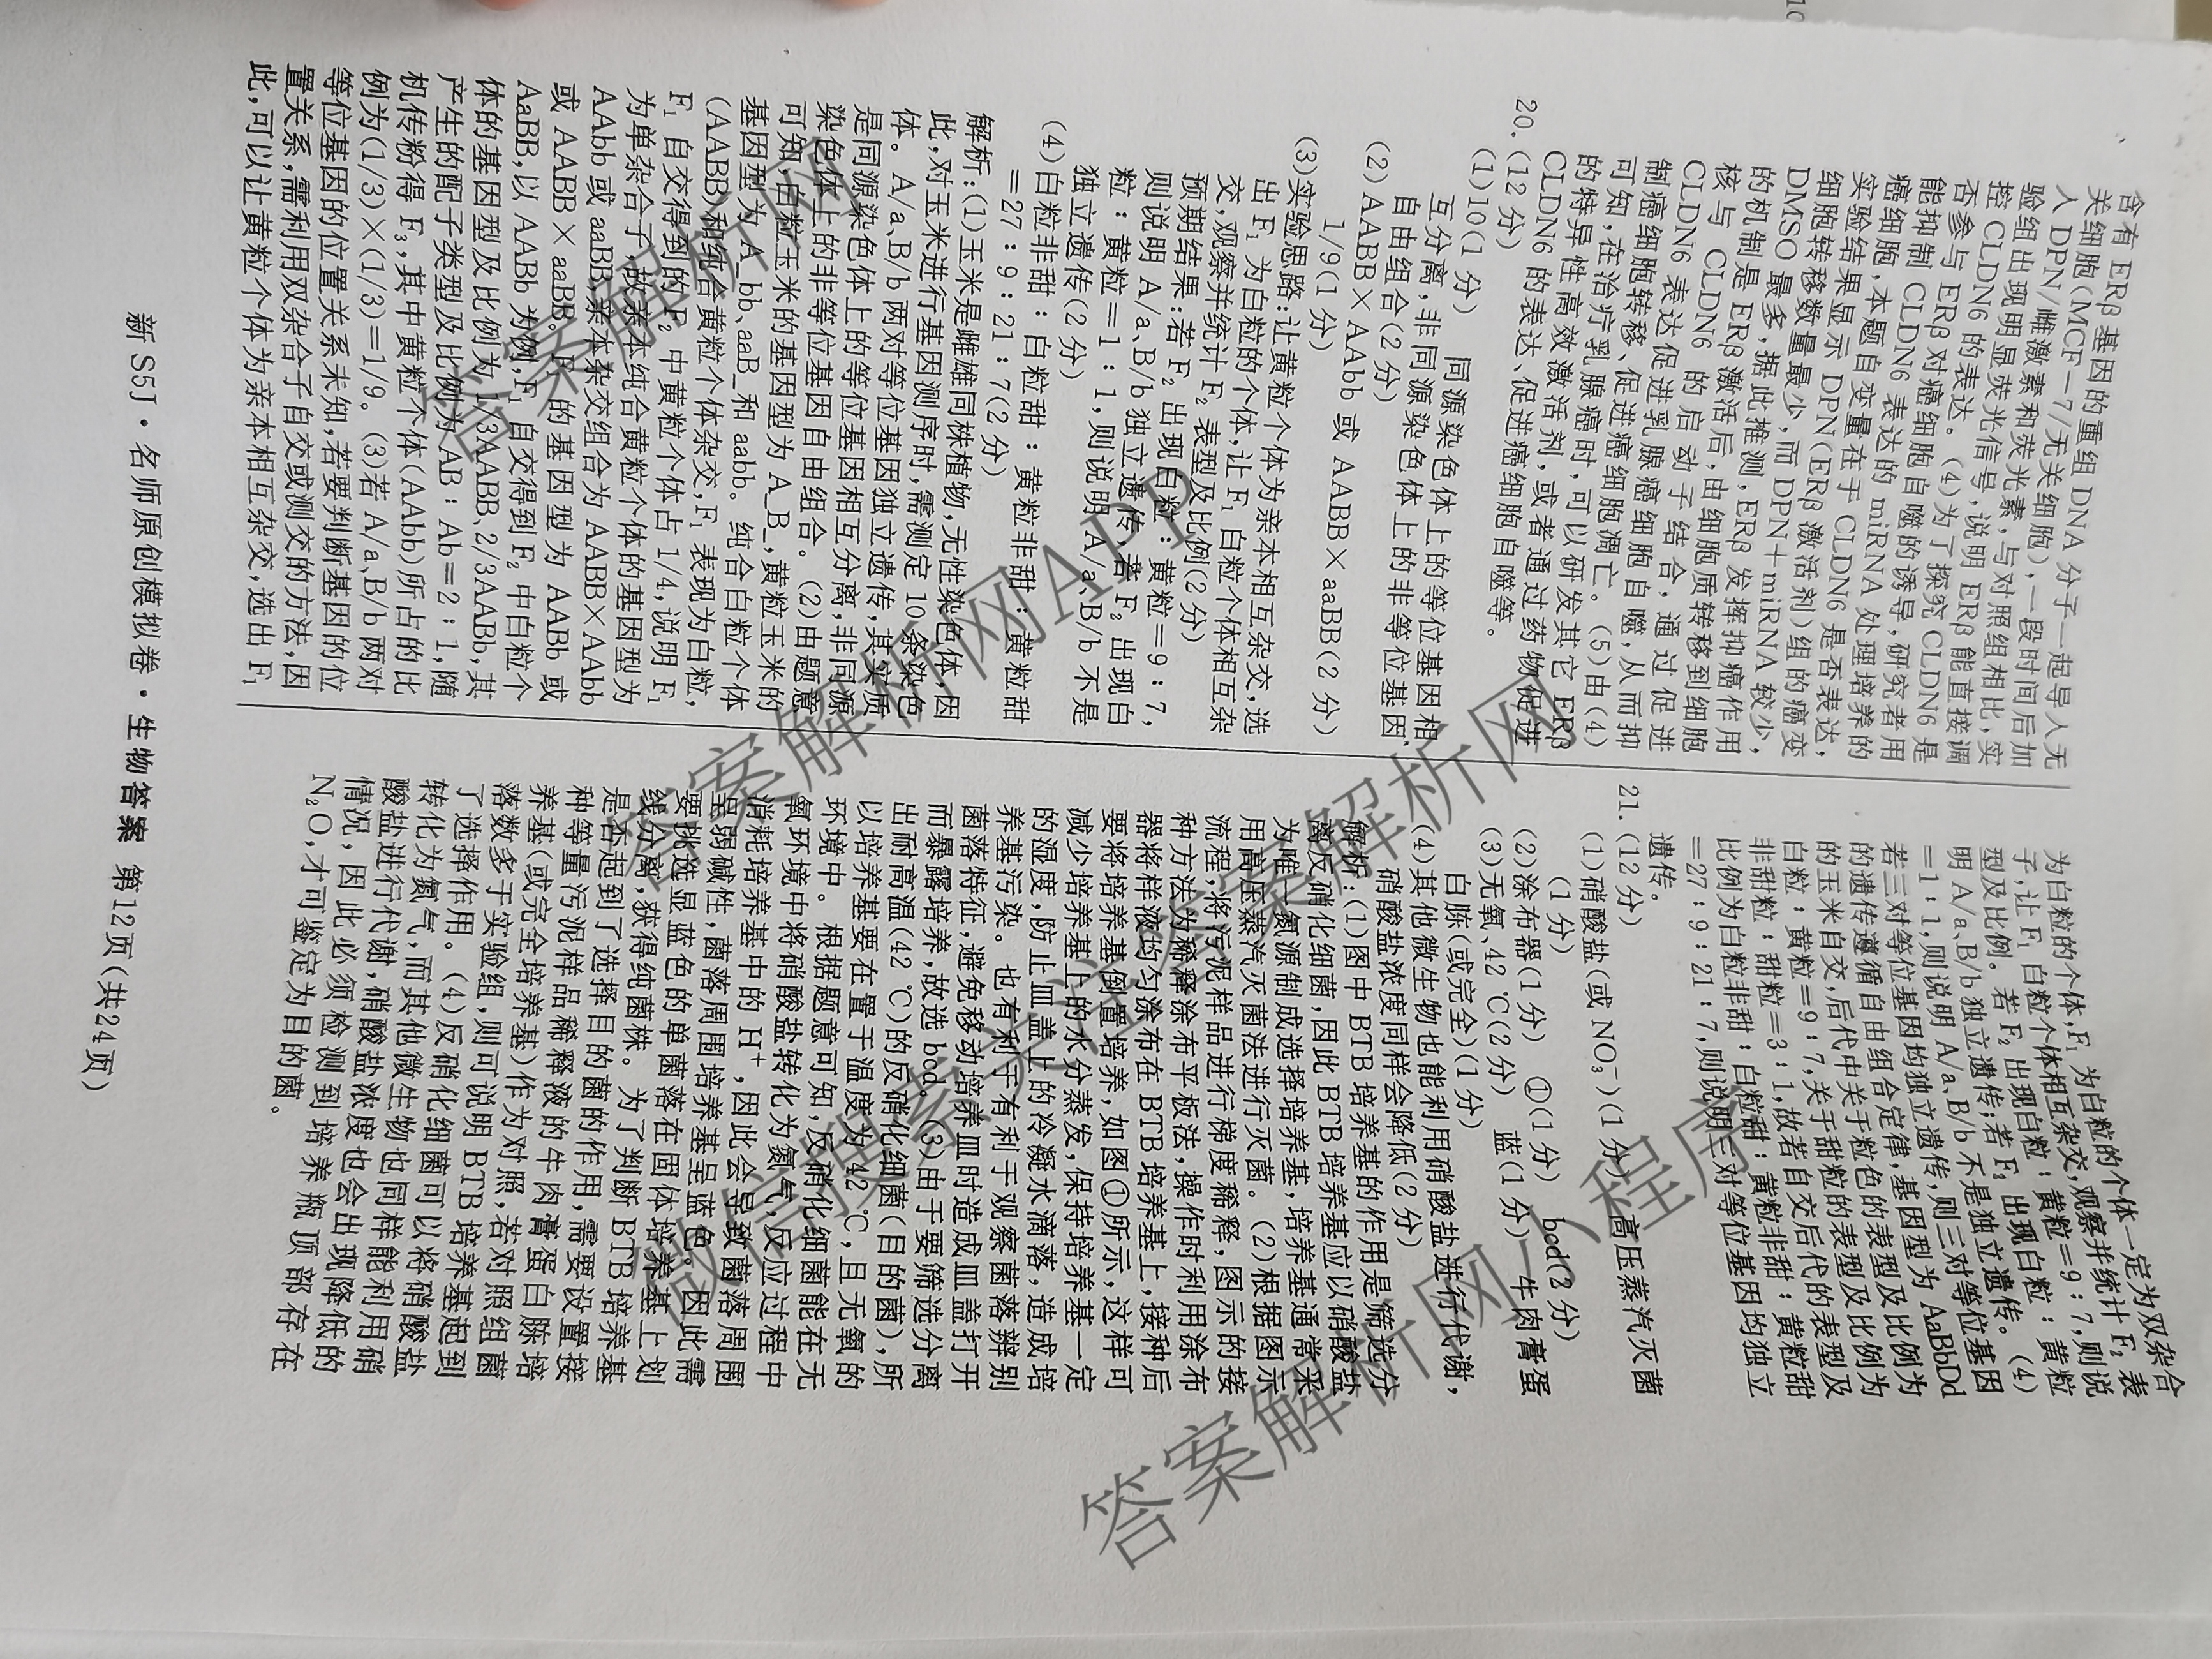 含有 ERβ 基因的重组 DNA 分子一起导入无
关细胞(MCF-7/无关细胞),一段时间后加
入 DPN/雌激素和荧光素,与对照组相比,实
验组出现明显荧光信号,说明 ERβ 能直接调
控 CLDN6 的表达。(4)为了探究 CLDN6 是
否参与 ERβ 对癌细胞自噬的诱导,研究者用
能抑制 CLDN6 表达的 miRNA 处理培养的
癌细胞,本题自变量在于 CLDN6 是否表达,
实验结果显示 DPN(ERβ 激活剂)组的癌变
细胞转移数量最少,而 DPN+miRNA 较少,
DMSO 最多,据此推测,ERβ 发挥抑癌作用
的机制是 ERβ 激活后,由细胞质转移到细胞
核与 CLDN6 的启动子结合,通过促进
CLDN6 表达促进乳腺癌细胞自噬,从而抑
制癌细胞转移、促进癌细胞凋亡。(5)由(4)
可知,在治疗乳腺癌时,可以研发其它 ERβ
的特异性高效激活剂,或者通过药物促进
CLDN6 的表达、促进癌细胞自噬等。
20.(12 分)
(1)10(1 分) 同源染色体上的等位基因相
互分离,非同源染色体上的非等位基因
自由组合(2 分)
(2)AABB×AAbb 或 AABB×aaBB(2 分)
1/9(1 分)
(3)实验思路:让黄粒个体为亲本相互杂交,选
出 F₁ 为白粒的个体,让 F₁ 白粒个体相互杂
交,观察并统计 F₂ 表型及比例(2 分)
预期结果:若 F₂ 出现白粒:黄粒=9:7,
则说明 A/a、B/b 独立遗传;若 F₂ 出现白
粒:黄粒=1:1,则说明 A/a、B/b 不是
独立遗传(2 分)
(4)白粒非甜:白粒甜:黄粒非甜:黄粒甜
=27:9:21:7(2 分)
解析:(1)玉米是雌雄同株植物,无性染色体,因
此,对玉米进行基因测序时,需测定 10 条染色
体。A/a、B/b 两对等位基因独立遗传,其实质
是同源染色体上的等位基因相互分离,非同源
染色体上的非等位基因自由组合。(2)由题意
可知,白粒玉米的基因型为 A_B_,黄粒玉米的
基因型为 A_bb、aaB_和 aabb。纯合白粒个体
(AABB)和纯合黄粒个体杂交,F₁ 表现为白粒,
F₁ 自交得到的 F₂ 中黄粒个体占 1/4,说明 F₁
为单杂合子,故亲本纯合黄粒个体的基因型为
AAbb 或 aaBB,亲本杂交组合为 AABB×AAbb
或 AABB×aaBB。F₁ 的基因型为 AABb 或
AaBB,以 AABb 为例,F₁ 自交得到 F₂ 中白粒个
体的基因型及比例为 1/3AABB、2/3AABb,其
产生的配子类型及比例为 AB:Ab=2:1,随
机传粉得 F₃,其中黄粒个体(AAbb)所占的比
例为(1/3)×(1/3)=1/9。(3)若 A/a、B/b 两对
等位基因的位置关系未知,若要判断基因的位
置关系,需利用双杂合子自交或测交的方法,因
此,可以让黄粒个体为亲本相互杂交,选出 F₁
为白粒的个体,F₁ 为白粒的个体一定为双杂合
子,让 F₁ 白粒个体相互杂交,观察并统计 F₂ 表
型及比例。若 F₂ 出现白粒:黄粒=9:7,则说
明 A/a、B/b 独立遗传;若 F₂ 出现白粒:黄粒
=1:1,则说明 A/a、B/b 不是独立遗传。(4)
若三对等位基因均独立遗传,则三对等位基因
的遗传遵循自由组合定律,基因型为 AaBbDd
的玉米自交,后代中关于粒色的表型及比例为
白粒:黄粒=9:7,关于甜粒的表型及比例为
非甜粒:甜粒=3:1,故若自交后代的表型及
比例为白粒非甜:白粒甜:黄粒非甜:黄粒甜
=27:9:21:7,则说明三对等位基因均独立
遗传。
21.(12 分)
(1)硝酸盐(或 NO₃⁻)(1 分) 高压蒸汽灭菌
(1 分)
(2)涂布器(1 分) ①(1 分) bcd(2 分)
(3)无氧、42 ℃(2 分) 蓝(1 分) 牛肉膏蛋
白胨(或完全)(1 分)
(4)其他微生物也能利用硝酸盐进行代谢,
硝酸盐浓度同样会降低(2 分)
解析:(1)图中 BTB 培养基的作用是筛选分
离反硝化细菌,因此 BTB 培养基应以硝酸盐
为唯一氮源制成选择培养基,培养基通常采
用高压蒸汽灭菌法进行灭菌。(2)根据图示
流程,将污泥样品进行梯度稀释,图示的接
种方法为稀释涂布平板法,操作时利用涂布
器将样液均匀涂布在 BTB 培养基上,接种后
要将培养基倒置培养,如图①所示,这样可
减少培养基上的水分蒸发,保持培养基一定
的湿度,防止皿盖上的冷凝水滴落,造成培
养基污染。也有利于有利于观察菌落辨别
菌落特征,避免移动培养皿时造成皿盖打开
而暴露培养,故选 bcd。(3)由于要筛选分离
出耐高温(42 ℃)的反硝化细菌(目的菌),所
以培养基要在置于温度为 42 ℃,且无氧的
环境中。根据题意可知,反硝化细菌能在无
氧环境中将硝酸盐转化为氮气,反应过程中
消耗培养基中的 H⁺,因此会导致菌落周围
呈弱碱性,菌落周围培养基呈蓝色。因此需
要挑选显蓝色的单菌落在固体培养基上划
线分离,获得纯菌株。为了判断 BTB 培养基
是否起到了选择目的菌的作用,需要设置接
种等量污泥样品稀释液的牛肉膏蛋白胨培
养基(或完全培养基)作为对照,若对照组菌
落数多于实验组,则可说明 BTB 培养基起到
了选择作用。(4)反硝化细菌可以将硝酸盐
转化为氮气,而其他微生物也同样能利用硝
酸盐进行代谢,硝酸盐浓度也会出现降低的
情况,因此必须检测到培养瓶顶部存在
N₂O,才可鉴定为目的菌。
新 S5J·名师原创模拟卷·生物答案 第12页(共24页)
答案解析网
答案解析网APP
微信搜索关注答案解析网
答案解析网小程序